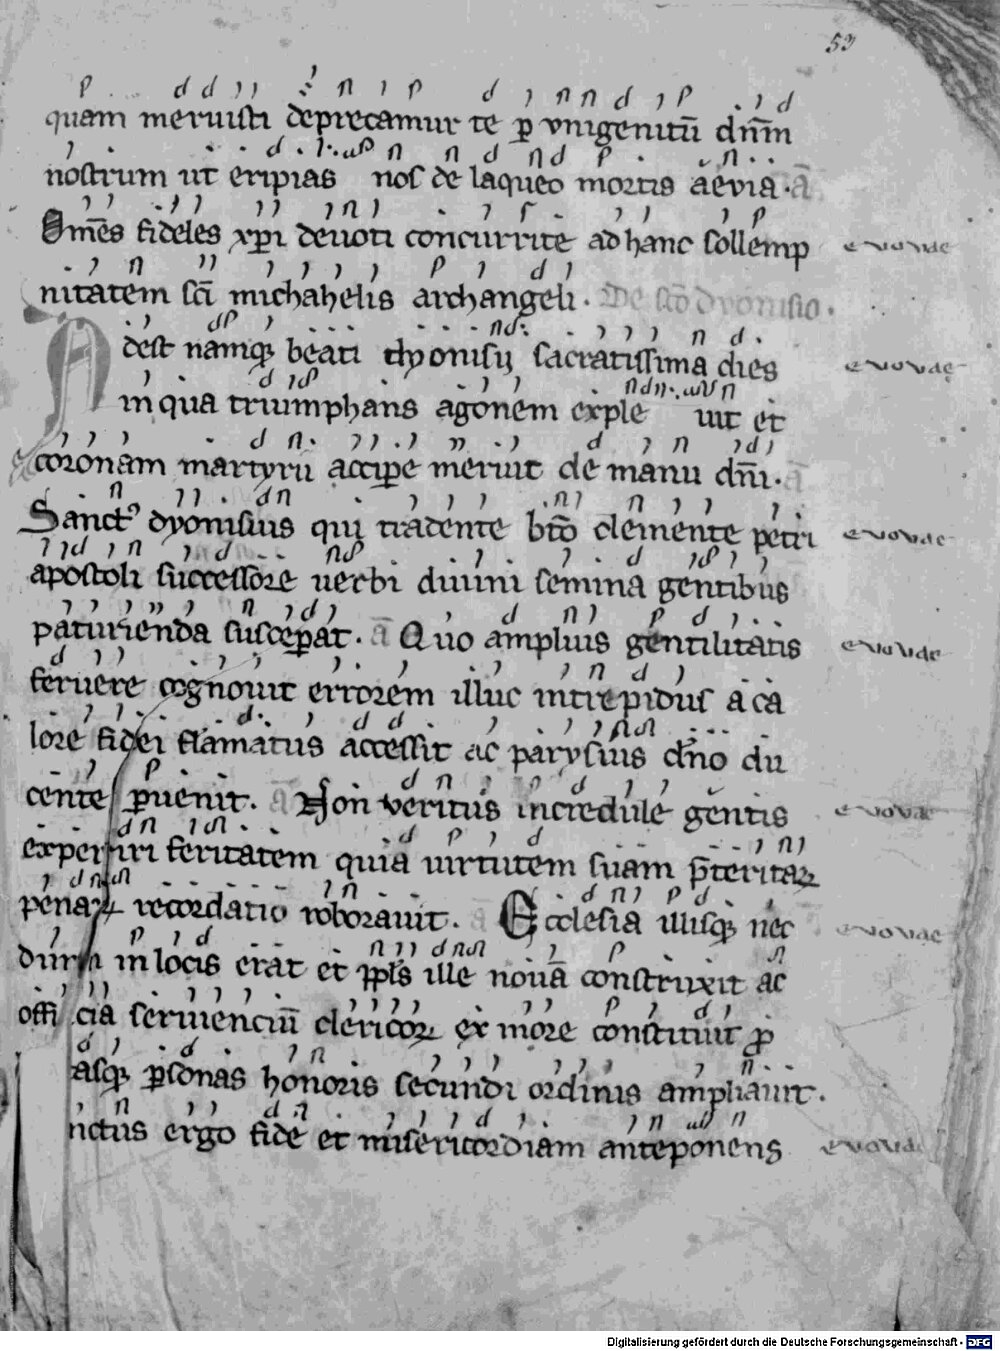 59
quam meruisti deprecamur te ꝑ vnigenitū dn̄m
nostrum ut eripias nos de laqueo mortis aeviā · ā
Om̄es fideles xp̄i deuoti concurrite ad hanc sollemp euouae
nitatem sc̄i michahelis archangeli · De sc̄o dyonisio ·
Adest namqꝫ beati dyonisij sacratissima dies euouae
in qua triumphans agonem expleuit et
coronam martyrii accipe meruit de manu dn̄i · ā
Sanctꝰ dyonisius qui tradente bt̄o clemente petri euouae
apostoli successore uerbi diuini semina gentibus
paturienda susceꝑat · ā Quo amplius gentilitatis euouae
feruere cognouit errorem illuc intrepidus a ca
lore fidei flamatus accessit ac parysius dn̄o du
cente ꝑuenit · ā Non veritus incredule gentis euouae
experiri feritatem quia uirtutem suam p̄teritaꝝ
penaꝝ recordatio roborauit · ā Ecclesia illisqꝫ nec euouae
dum in locis erat et ppl̄s ille nouā construxit ac
officia seruienciū clericoꝝ ex more constituit ꝓ
asqꝫ ꝑsonas honoris secundi ordinis ampliauit ·
nctus ergo fide et misericordiam anteponens euouae
Digitalisierung gefördert durch die Deutsche Forschungsgemeinschaft - DFG